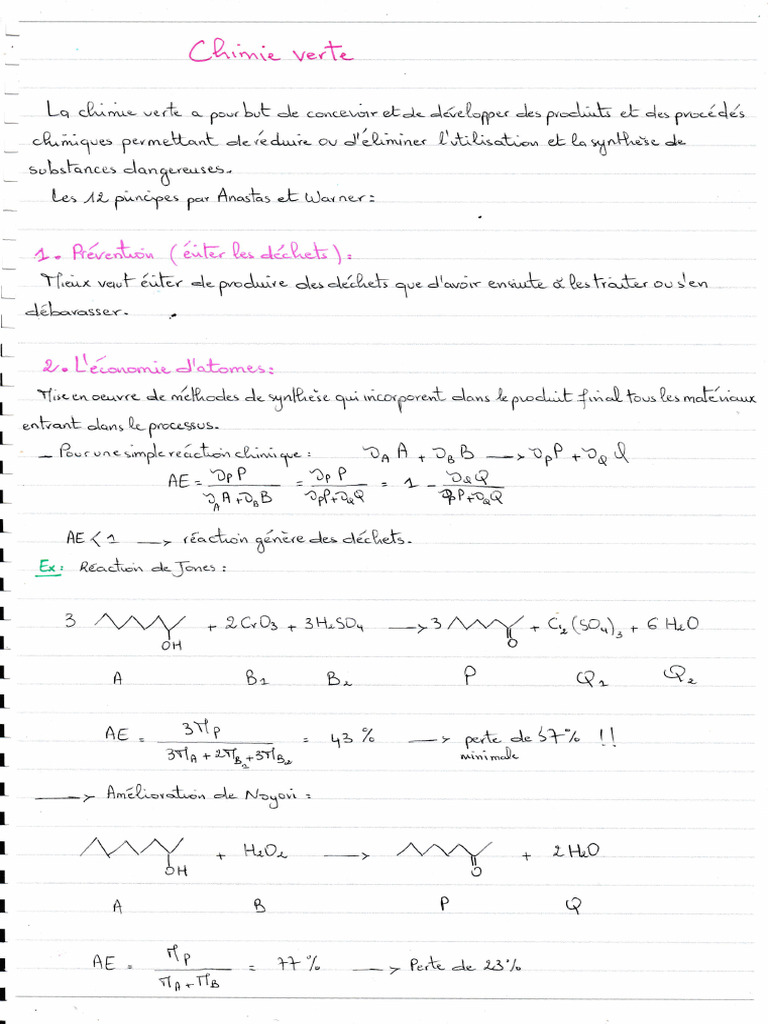 Chimie verte
La chimie verte a pour but de concevoir et de développer des produits et des procédés
chimiques permettant de réduire ou d'éliminer l'utilisation et la synthèse de
substances dangereuses.
Les 12 principes par Anastas et Warner :
1. Prévention (éviter les déchets) :
Mieux vaut éviter de produire des déchets que d'avoir ensuite à les traiter ou s'en
débarasser.
2. L'économie d'atomes :
Mise en oeuvre de méthodes de synthèse qui incorporent dans le produit final tous les matériaux
entrant dans le processus.
- Pour une simple réaction chimique : ν_A A + ν_B B → ν_P P + ν_Q Q
AE = ν_P P / (ν_A A + ν_B B) = ν_P P / (ν_P P + ν_Q Q) = 1 - ν_Q Q / (ν_P P + ν_Q Q)
AE < 1 → réaction génère des déchets.
Ex : Réaction de Jones :
3 OH + 2 CrO3 + 3 H2SO4 → 3 O + Cr2(SO4)3 + 6 H2O
A B1 B2 P Q1 Q2
AE = 3M_P / (3M_A + 2M_B2 + 3M_B2) = 43 % → perte de 57 % !!
minimale
→ Amélioration de Noyori :
OH + H2O2 → O + 2 H2O
A B P Q
AE = M_P / (M_A + M_B) = 77 % → Perte de 23 %